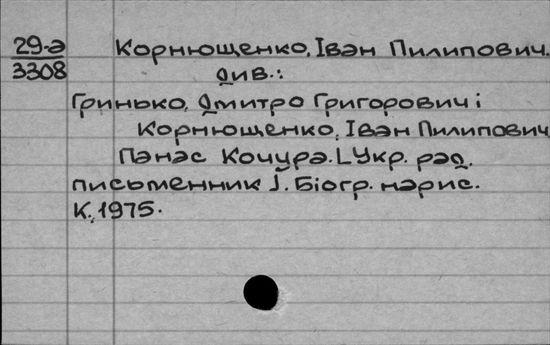 29-а Корнющенко, Іван Пилипович.
3308 див.:
Гринько, Дмитро Григорович і
Корнющенко, Іван Пилипович
Панас Кочура. [Укр. рад.
письменник]. Біогр. нарис.
К., 1975.